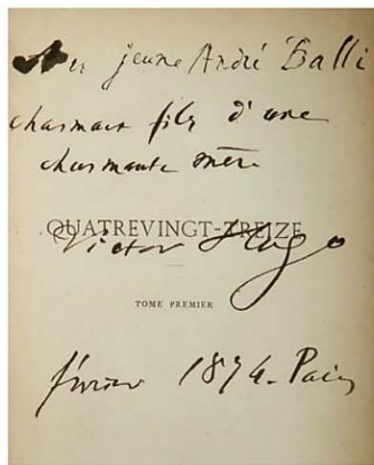 Au jeune André Balli
charmant fils d'une
charmante mère
QUATREVINGT-TREIZE
Victor Hugo
TOME PREMIER
février 1874. Paris